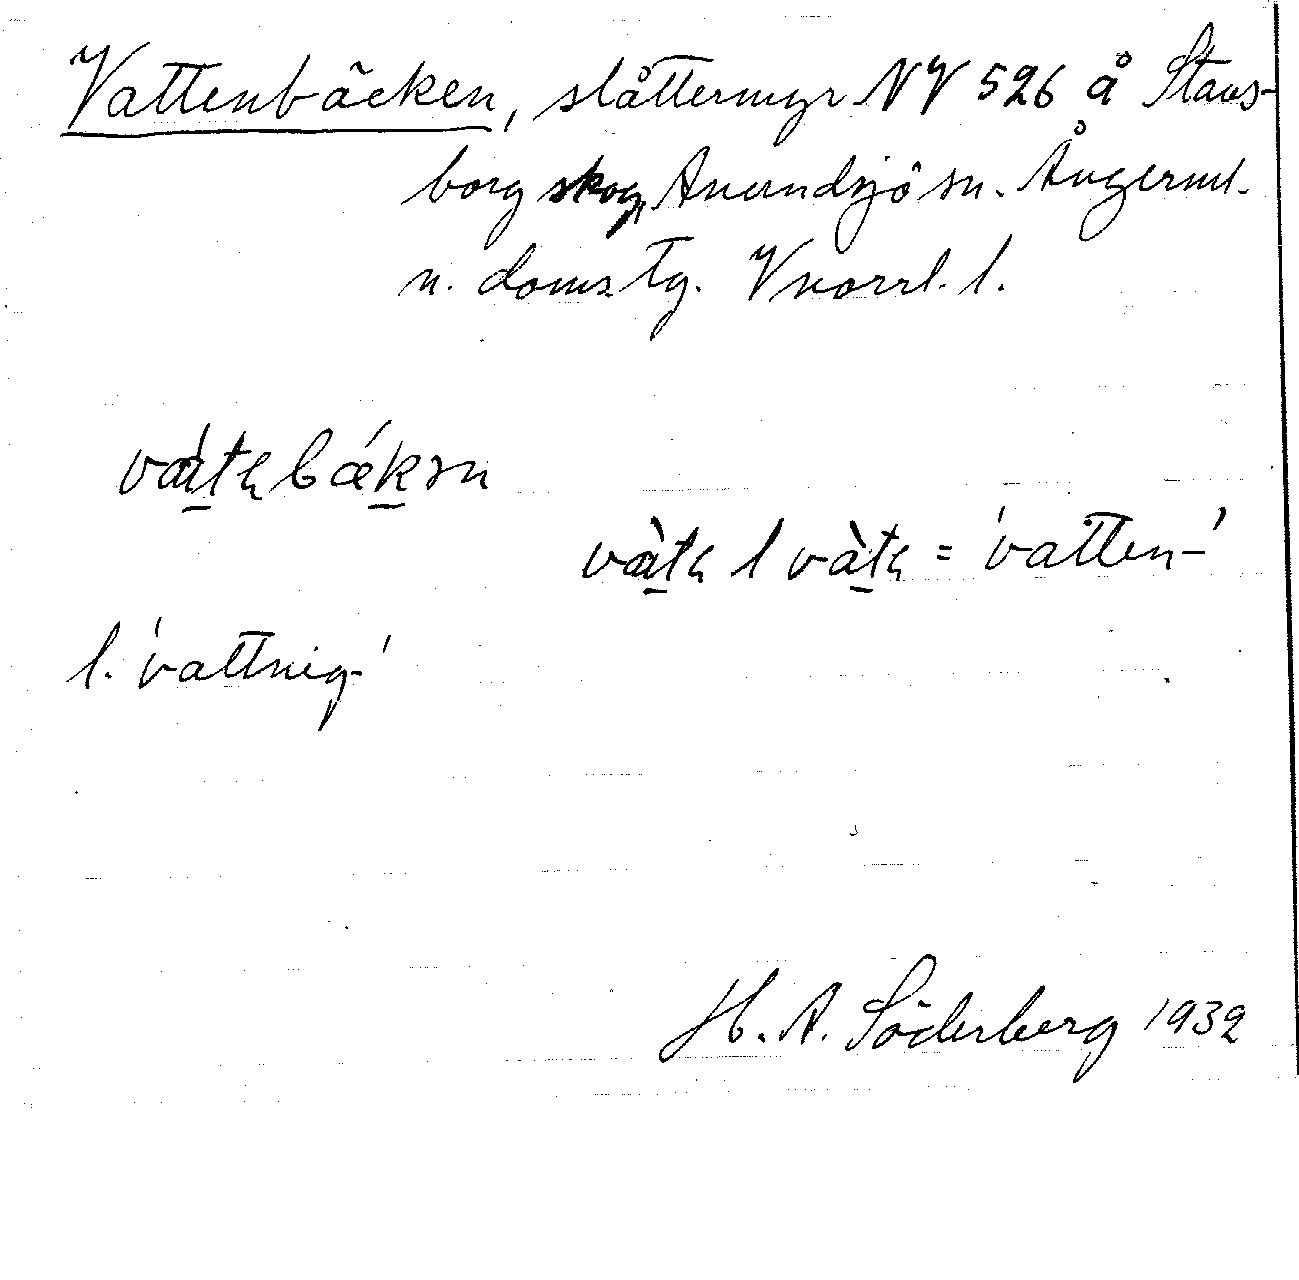 Vattenbäcken, slåttermyr NV 526 å Stavs-
borg skog, Anundsjö sn. Ångerml.
n. doms. tg. Vnorrl. l.
= 'vatten-'
l. 'vattnig-'
H. A. Söderberg 1932